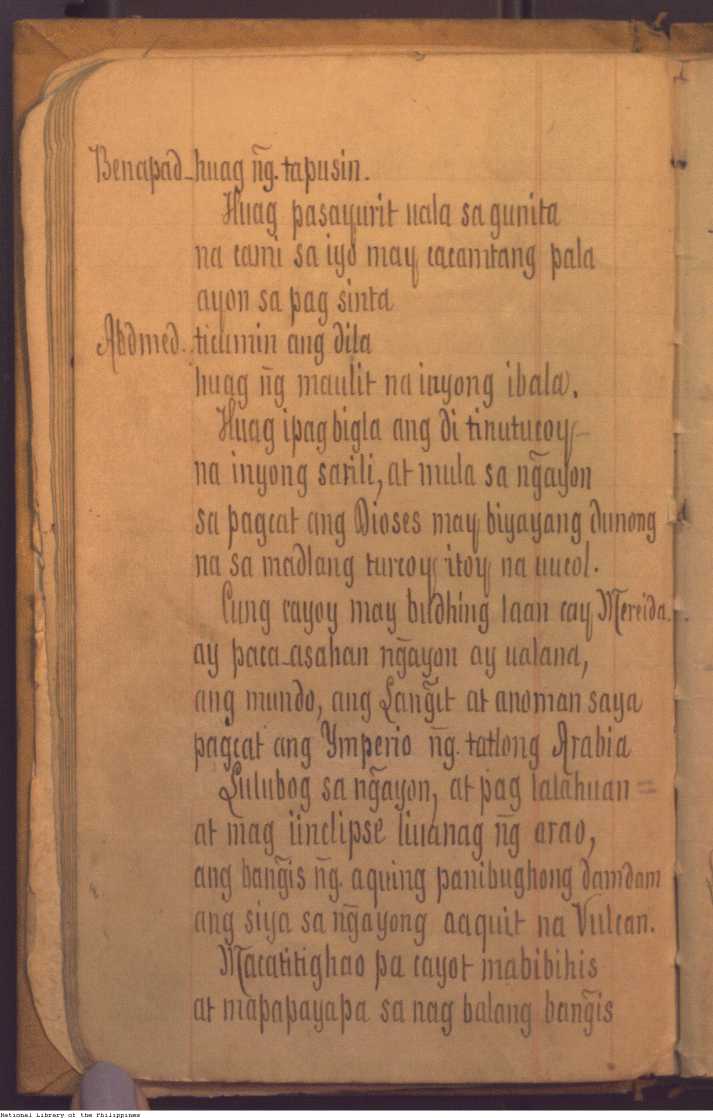 Benapad-huag ñg. tapusin.
Huag pasayurit uala sa gunita
na cami sa iyo may cacamtang pala
ayon sa pag sinta
Abdmed. ticumin ang dila
huag ñg maulit na inyong ibala.
Huag ipag bigla ang di tinutucoy-
na inyong sarili, at mula sa ng̃ayon
sa pagcat ang Dioses may biyayang dunong
na sa madlang turcoy itoy na uucol.
Cung cayoy may budhing laan cay Mereida..
ay paca-asahan ng̃ayon ay ualana,
ang mundo, ang Lang̃it at anoman saya
pagcat ang Ymperio ñg. tatlong Arabia
Lulubog sa ng̃ayon, at pag lalahuan =
at mag iinclipse liuanag ñg arao,
ang bang̃is ñg. aquing panibughong damdam
ang siya sa ng̃ayong aaquit na Vulcan.
Macatitighao pa cayot mabibihis
at mapapayapa sa nag balang bang̃is
National Library of the Philippines